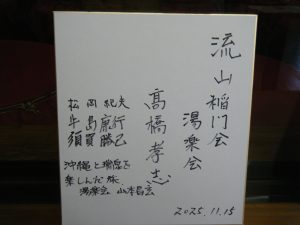 流山稲門会
湯樂会
高橋孝志
松岡紀夫
牛島康行
須賀勝己
沖縄と環境を
楽しんだ旅
湯樂会 山本昌宏
2025.11.15